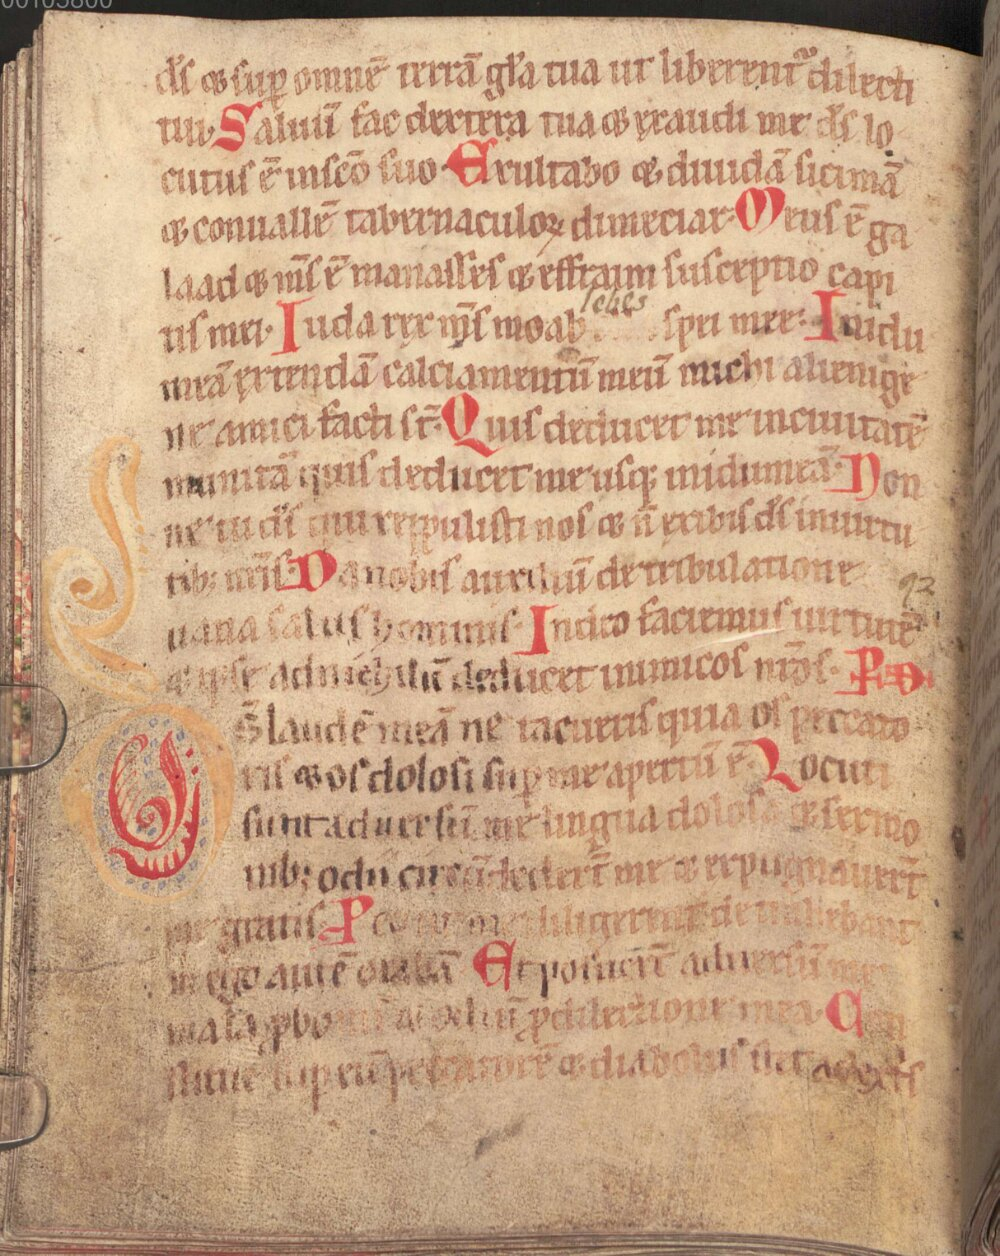 00105800
ds̄ ⁊ sup̱ omnē terrā gl̄a tua ut liberentᷣ dilecti
tui. Saluū fac dextera tua ⁊ exaudi me ds̄ lo
cutus ē in sc̄o suo Exultabo ⁊ diuidā sicimā
⁊ conuallē tabernaculoꝝ dimeciar. Meus ē ga
laad ⁊ m̄s ē manasses ⁊ effraim susceptio capi
tis mei. Iuda rex m̄s moab lebes spei mee. In idu
meā extendā calciamentū meū michi alienige
ne amici facti st̄. Quis deducet me in ciuitatē
munitā quis deducet me usq; in idumeā. Non
ne tu ds̄ qui reppulisti nos ⁊ n̄ exibis ds̄ in uirtu
tib; nr̄is Da nobis auxiliū de tribulatione
uana salus hominis. In deo faciemus uirtutē
⁊ ipse ad nichilū deducet inimicos nr̄os. PS̄ D
S̄ laudē meā ne tacueris quia os peccato
ris ⁊ os dolosi sup̱ me apertū ē. Locuti
sunt aduersū me lingua dolosa ⁊ sermo
nib; odii circūdederūt me ⁊ expugnauerūt
me gratis P me diligerent detrahebant
m ego autē orabā Et posuerūt aduersū me
mala ꝓ bonis ⁊ odiū ꝓ dilectione mea. Con
stitue sup̱ eū peccatorē ⁊ diabolus stet a dextris